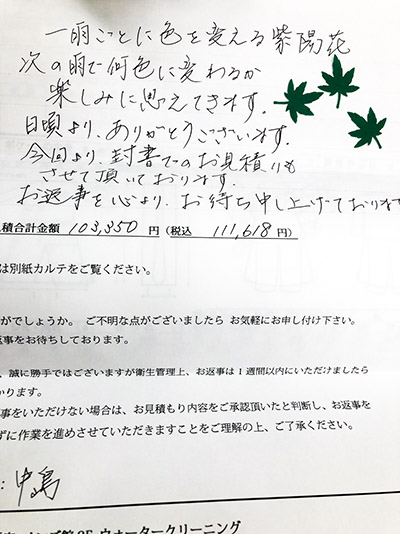 一雨ごとに色を変える紫陽花
次の雨で何色に変わるか
楽しみに思えてきます。
日頃より、ありがとうございます。
今回より、封書でのお見積りも
させて頂いております。
お返事を心より、お待ち申し上げております
積合計金額 103,350 円(税込 111,618 円)
は別紙カルテをご覧ください。
がでしょうか。 ご不明な点がございましたら お気軽にお申し付け下さい。
事をお待ちしております。
、誠に勝手ではございますが衛生管理上、お返事は1週間以内にいただけましたら
かります。
事をいただけない場合は、お見積もり内容をご承認頂いたと判断し、お返事を
ずに作業を進めさせていただきますことをご理解の上、ご了承ください。
: 中島
2F ウォータークリーニング